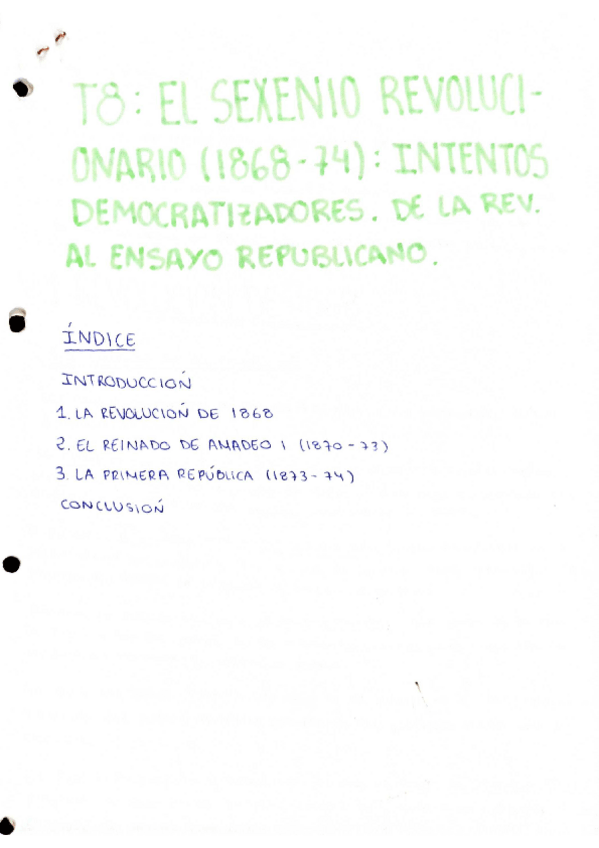 T8: EL SEXENIO REVOLUCI-
ONARIO (1868-74): INTENTOS
DEMOCRATIZADORES. DE LA REV.
AL ENSAYO REPUBLICANO.
ÍNDICE
INTRODUCCIÓN
1. LA REVOLUCIÓN DE 1868
2. EL REINADO DE AMADEO I (1870-73)
3. LA PRIMERA REPÚBLICA (1873-74)
CONCLUSIÓN